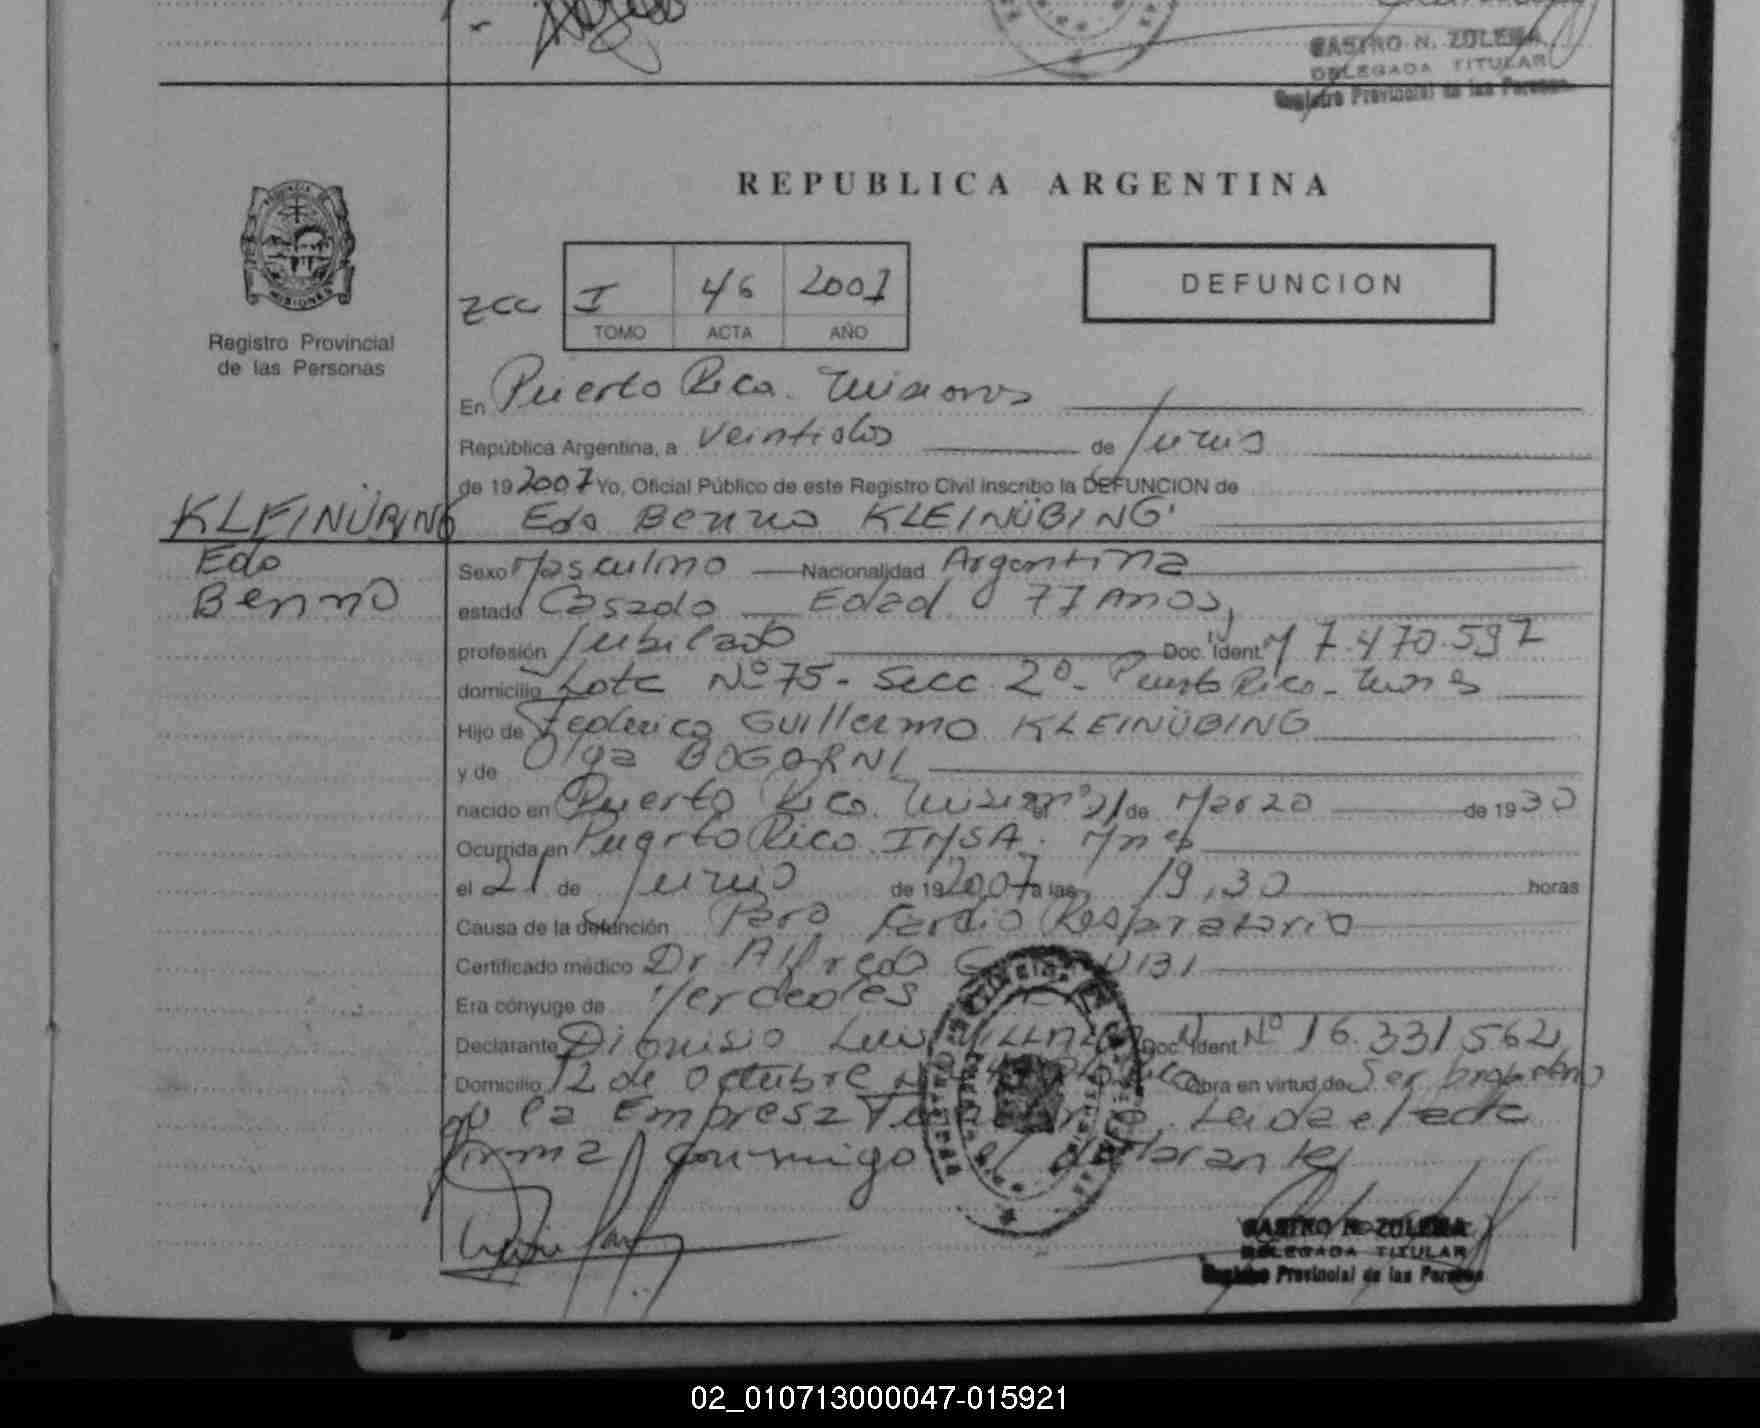 CASTRO N. ZULEMA
DELEGADA TITULAR
Registro Provincial de las Personas
REPUBLICA ARGENTINA
PROVINCIA
MISIONES
Registro Provincial
de las Personas
ZCC I 46 2007
TOMO ACTA AÑO
DEFUNCION
En Puerto Rico. Misiones
República Argentina, a veintidos de Junio
de 19 2007 Yo, Oficial Público de este Registro Civil inscribo la DEFUNCION de
KLEINÜBING Edo Benno KLEINÜBING
Edo
Benno
Sexo Masculino Nacionalidad Argentina
estado Casado Edad 77 Años,
profesión Jubilado Doc. Ident. M 7.470.597
domicilio Lote Nº 75 - Secc. 2º - Puerto Rico - Mnes
Hijo de Federico Guillermo KLEINÜBING
y de Olga BOGORNI
nacido en Puerto Rico. Misiones el 21 de Marzo de 1930
Ocurrida en Puerto Rico IMSA. Mnes
el 21 de Junio de 19 2007 a las 19,30 horas
Causa de la defunción Paro Cardio Respiratorio
Certificado médico Dr Alfredo
Era cónyuge de Mercedes
Declarante Dionisio Luis Doc. Ident. Nº 16.331562
Domicilio 12 de Octubre Obra en virtud de Ser
de la Empresa Leida el acta
firma conmigo el declarante
CASTRO N. ZULEMA
DELEGADA TITULAR
Registro Provincial de las Personas
02_010713000047-015921